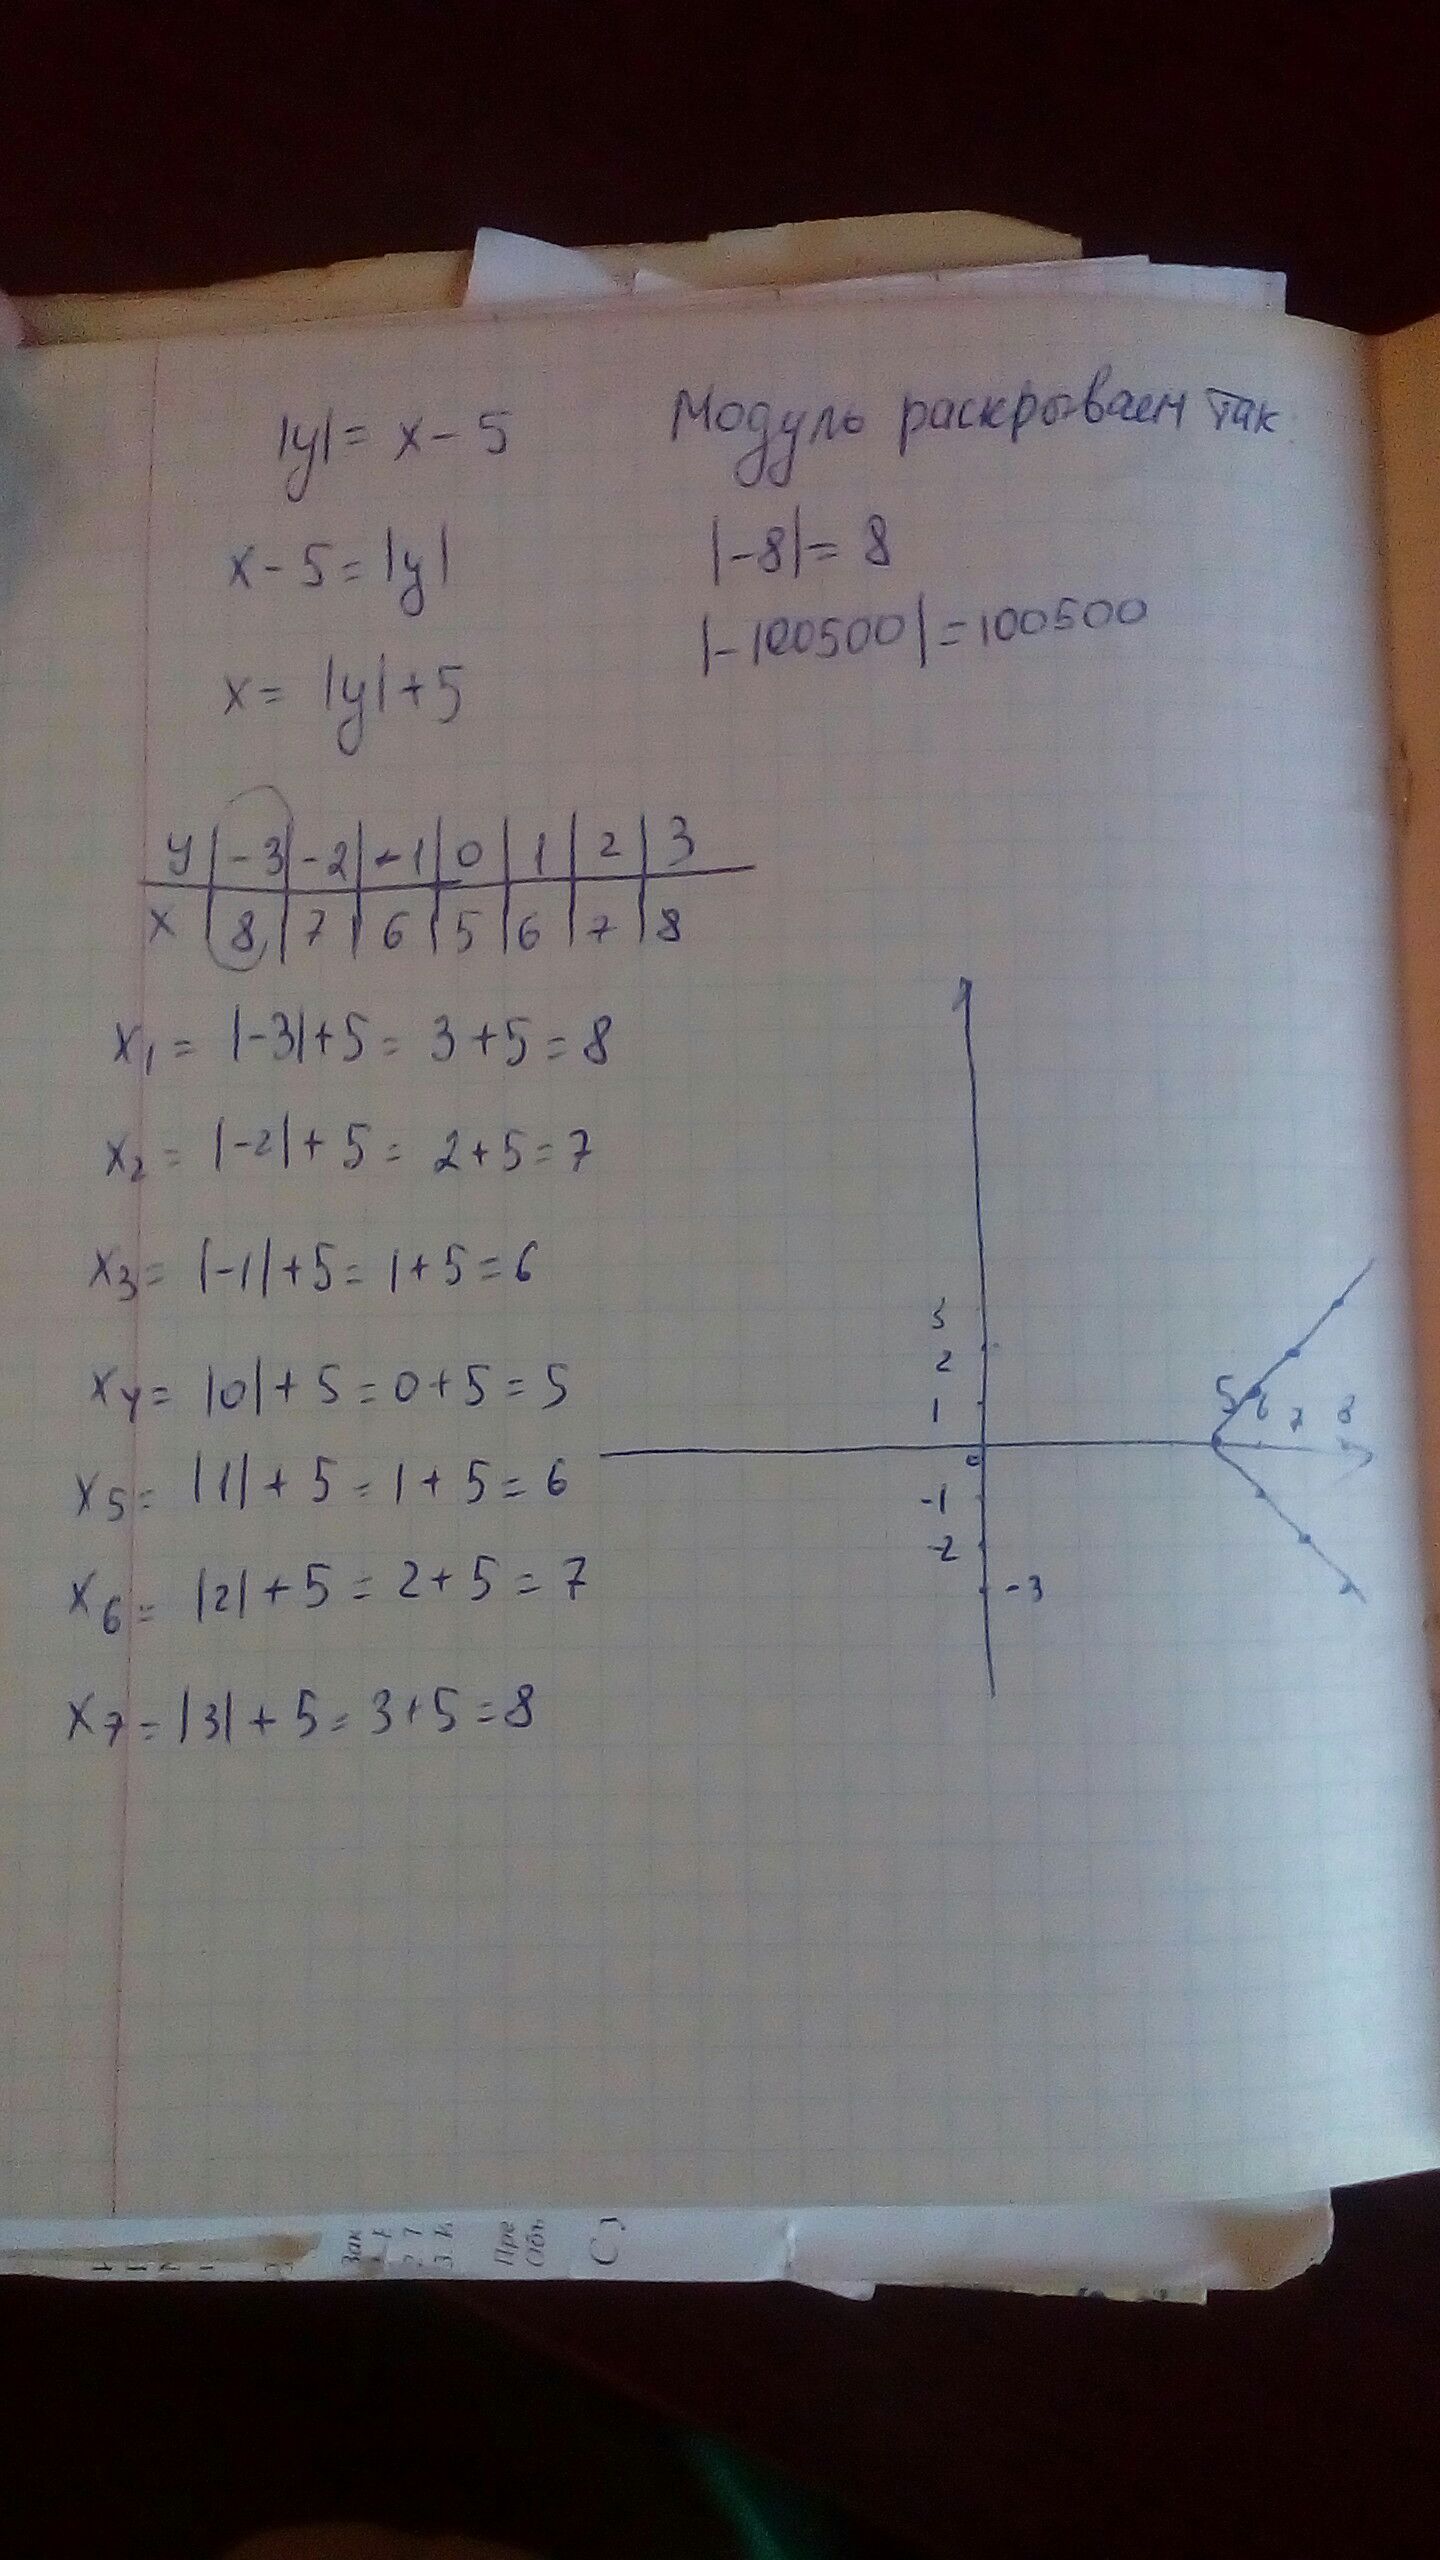 |y| = x - 5
Модуль раскрываем так
x - 5 = |y|
|-8| = 8
x = |y| + 5
|-100500| = 100500
y | -3 | -2 | -1 | 0 | 1 | 2 | 3
x | 8 | 7 | 6 | 5 | 6 | 7 | 8
x1 = |-3| + 5 = 3 + 5 = 8
x2 = |-2| + 5 = 2 + 5 = 7
x3 = |-1| + 5 = 1 + 5 = 6
x4 = |0| + 5 = 0 + 5 = 5
x5 = |1| + 5 = 1 + 5 = 6
x6 = |2| + 5 = 2 + 5 = 7
x7 = |3| + 5 = 3 + 5 = 8
3
2
1
5 6 7 8
0
-1
-2
-3
Зак
Пре